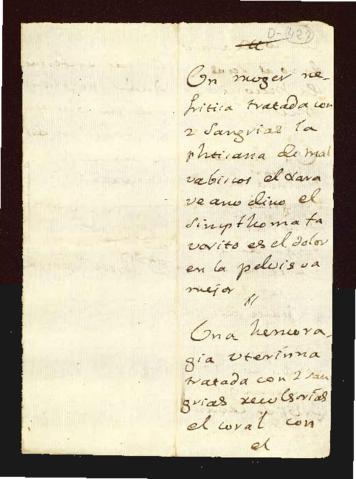 D-427
Un moger ne-
fritica tratada con
2 sangrias la
phtisana de mal
vabiscos el xara
ve anodino el
simpthoma fa
vorito es el dolor
en la pelvis va
mejor
Una hemora-
gia uterinna
tratada con 2 san
grias revulsorias
el coral con
el